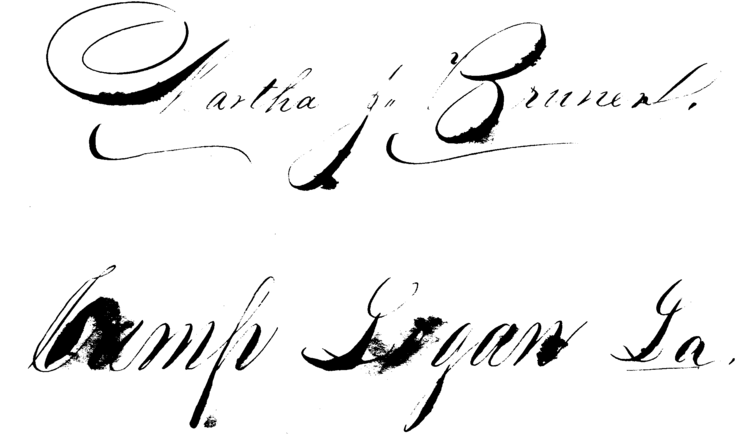 Martha J. Bruner.
Camp Logan Ia.